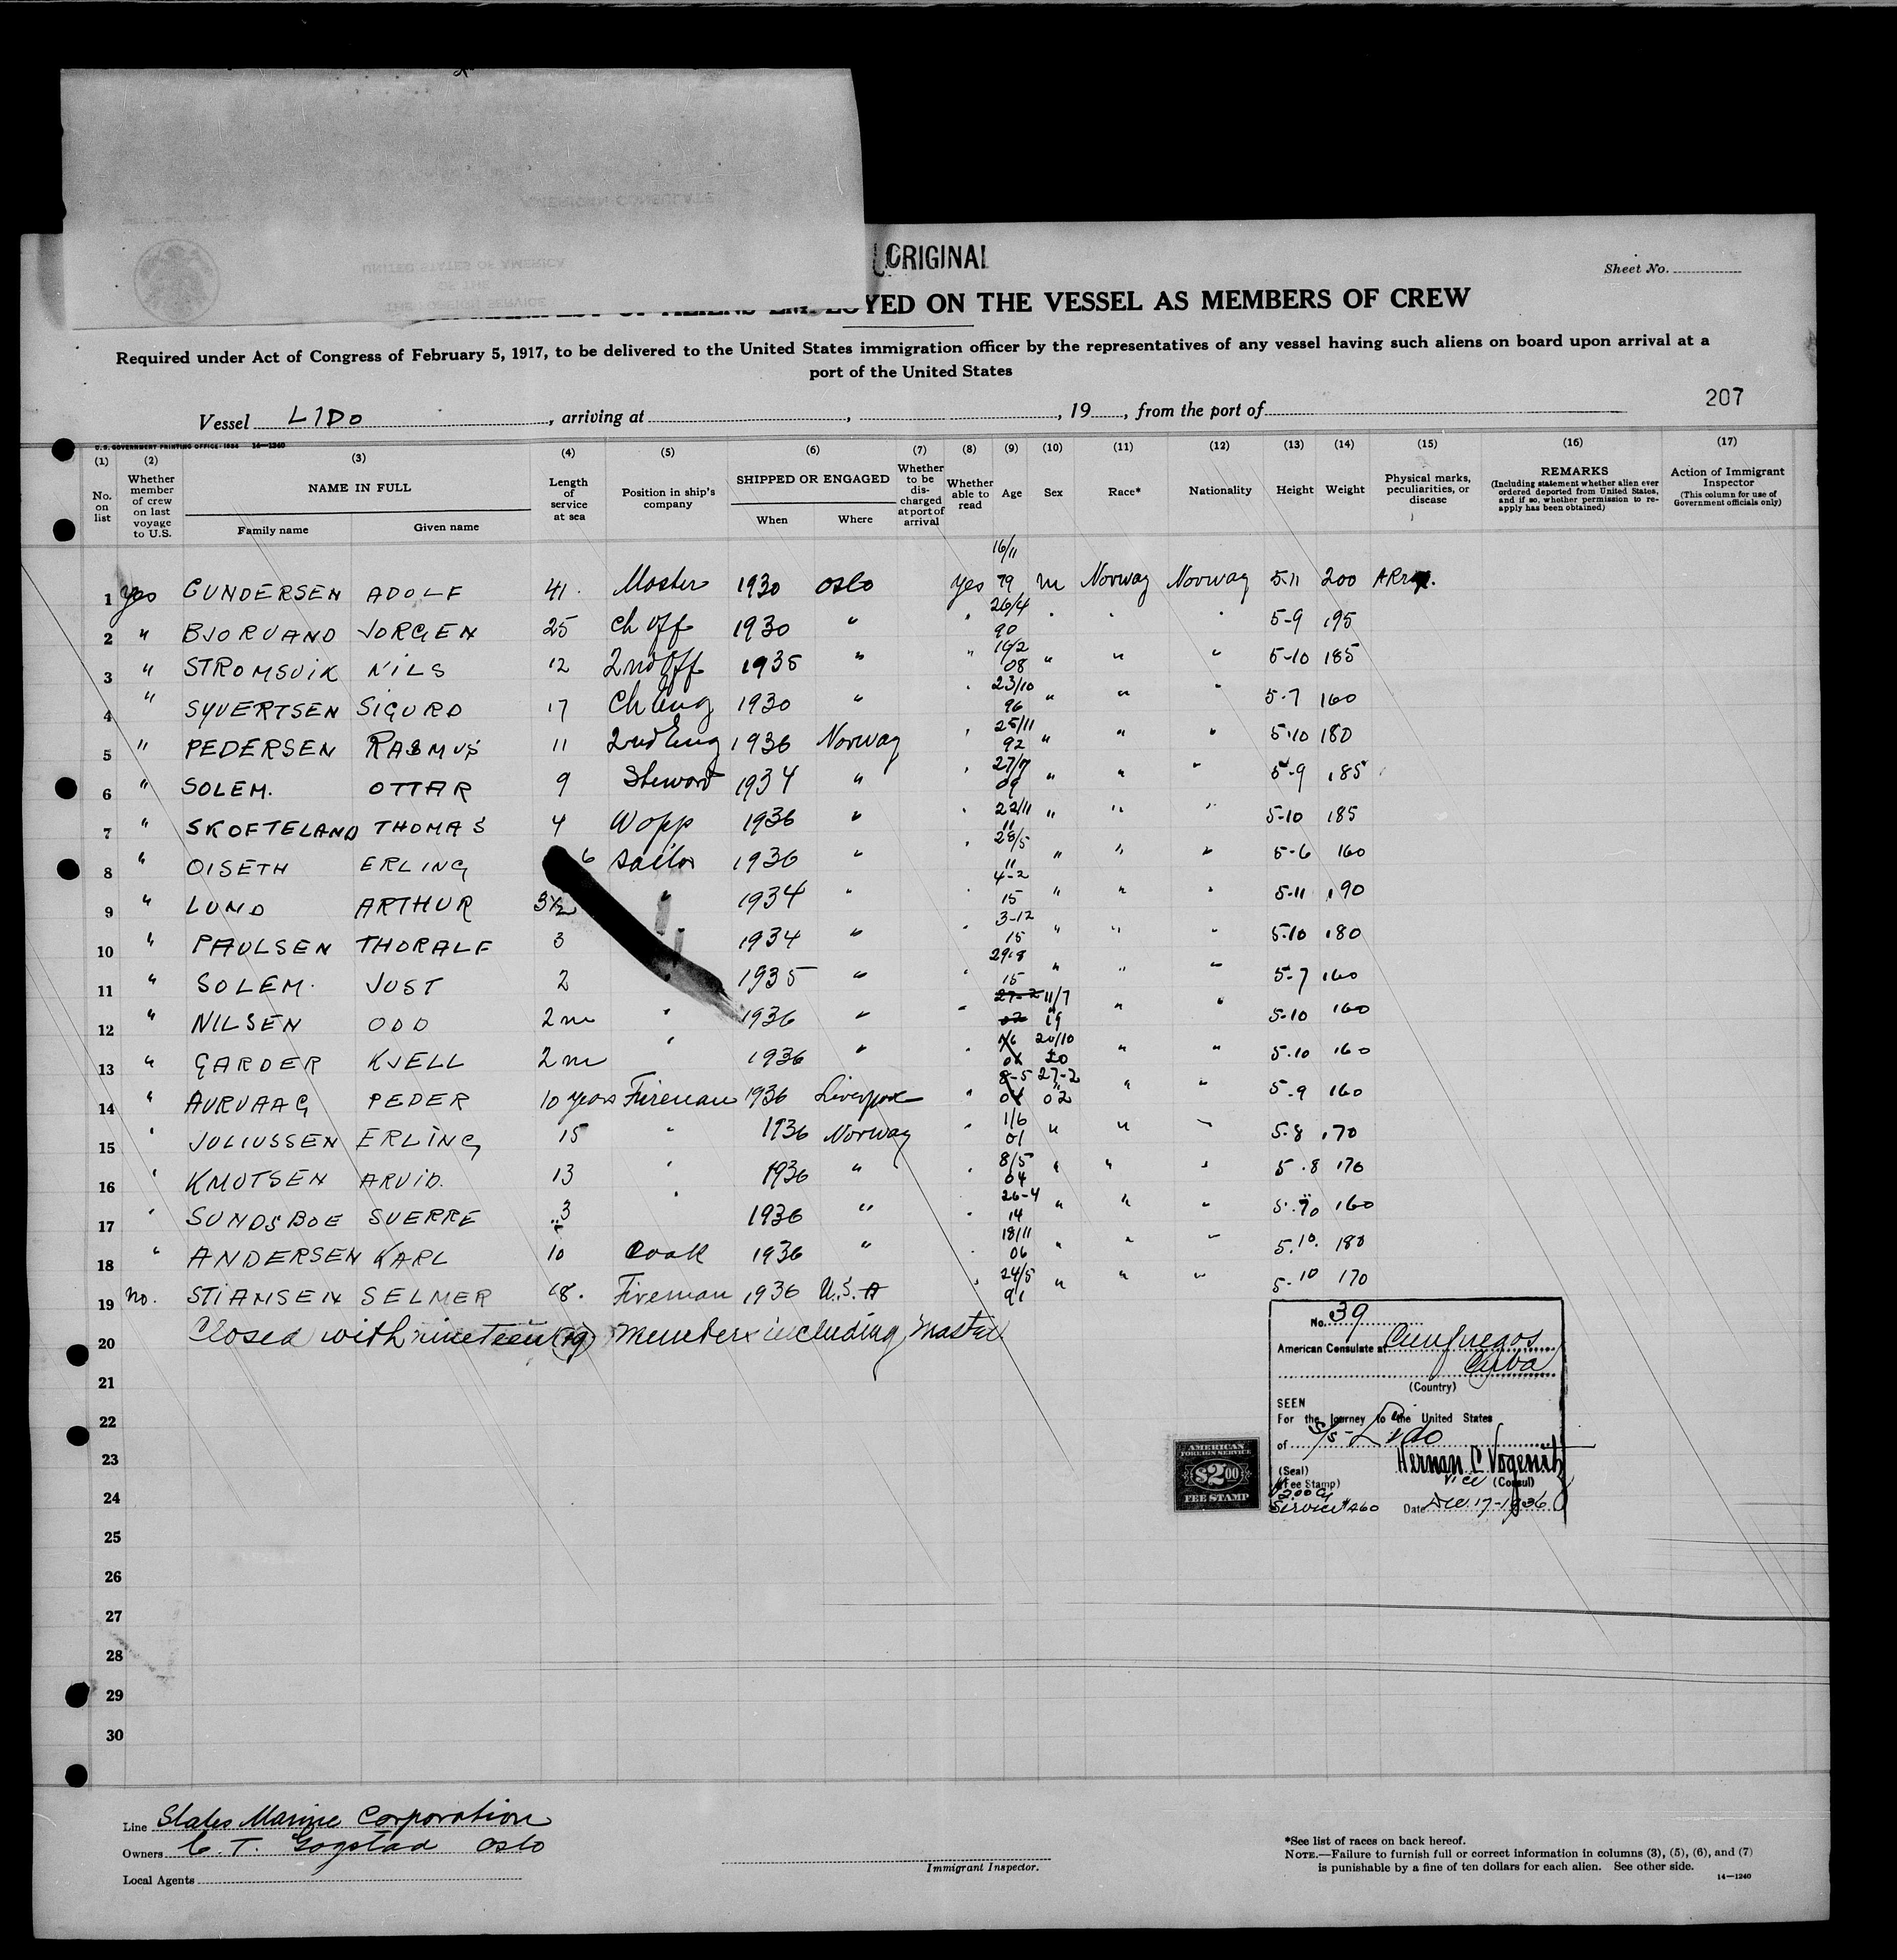 AMERICAN CONSULATE
UNITED STATES OF AMERICA
OF THE
THE FOREIGN SERVICE
ORIGINAL
Sheet No.
ALIENS EMPLOYED ON THE VESSEL AS MEMBERS OF CREW
Required under Act of Congress of February 5, 1917, to be delivered to the United States immigration officer by the representatives of any vessel having such aliens on board upon arrival at a
port of the United States
207
Vessel LIDO, arriving at , , 19 , from the port of
U. S. GOVERNMENT PRINTING OFFICE: 1934 14—1240
(1) (2) (3) (4) (5) (6) (7) (8) (9) (10) (11) (12) (13) (14) (15) (16) (17)
No. on list
Whether member of crew on last voyage to U.S.
NAME IN FULL
Family name Given name
Length of service at sea
Position in ship's company
SHIPPED OR ENGAGED
When Where
Whether to be discharged at port of arrival
Whether able to read
Age Sex Race* Nationality Height Weight
Physical marks, peculiarities, or disease
REMARKS
(Including statement whether alien ever ordered deported from United States, and if so, whether permission to reapply has been obtained)
Action of Immigrant Inspector
(This column for use of Government officials only)
1 yes GUNDERSEN ADOLF 41 Master 1930 Oslo yes 16/11 79 m Norway Norway 5-11 200
2 " BJORVAND JORGEN 25 Ch Off 1930 " " 26/4 90 " " " 5-9 195
3 " STROMSVIK NILS 12 2nd Off 1935 " " 16/2 08 " " " 5-10 185
4 " SYVERTSEN SIGURD 17 Ch Eng 1930 " " 23/10 96 " " " 5-7 160
5 " PEDERSEN RASMUS 11 2nd Eng 1936 Norway " 25/11 92 " " " 5-10 180
6 " SOLEM. OTTAR 9 Steward 1934 " " 27/7 09 " " " 5-9 185
7 " SKOFTELAND THOMAS 4 Wopp 1936 " " 22/11 11 " " " 5-10 185
8 " OISETH ERLING 6 Sailor 1936 " " 28/5 11 " " " 5-6 160
9 " LUND ARTHUR 3½ " 1934 " " 4-2 15 " " " 5-11 190
10 " PAULSEN THORALF 3 " 1934 " " 3-12 15 " " " 5-10 180
11 " SOLEM. JUST 2 " 1935 " " 29-8 15 " " " 5-7 160
12 " NILSEN ODD 2 m " 1936 " " 27-2 02 11/7 19 " " 5-10 160
13 " GARDER KJELL 2 m " 1936 " " 20/10 20 " " 5-10 160
14 " AURVAAG PEDER 10 years Fireman 1936 Liverpool " 8-5 04 27-2 02 " " 5-9 160
15 " JULIUSSEN ERLING 15 " 1936 Norway " 1/6 01 " " " 5-8 170
16 " KNUTSEN ARVID. 13 " 1936 " " 8/5 04 " " " 5-8 170
17 " SUNDSBOE SVERRE 3 " 1936 " " 26-4 14 " " " 160
18 " ANDERSEN KARL 10 Cook 1936 " " 18/11 06 " " " 5-10 180
19 no. STIANSEN SELMER 18. Fireman 1936 U.S.A " 24/5 91 " " " 5-10 170
20 Closed with nineteen (19) members including Master
21
22
23
24
25
26
27
28
29
30
No. 39
American Consulate at Cienfuegos
Cuba
(Country)
SEEN
For the Journey to the United States
of S/S- Lido
(Seal)
Vice (Consul)
(Fee Stamp)
Service #460
Date Dec. 17-1936
AMERICAN
FOREIGN SERVICE
$2.00
FEE STAMP
Line States Marine Corporation
Owners C. T. Gogstad Oslo
Local Agents
Immigrant Inspector.
*See list of races on back hereof.
NOTE.—Failure to furnish full or correct information in columns (3), (5), (6), and (7)
is punishable by a fine of ten dollars for each alien. See other side.
14—1240